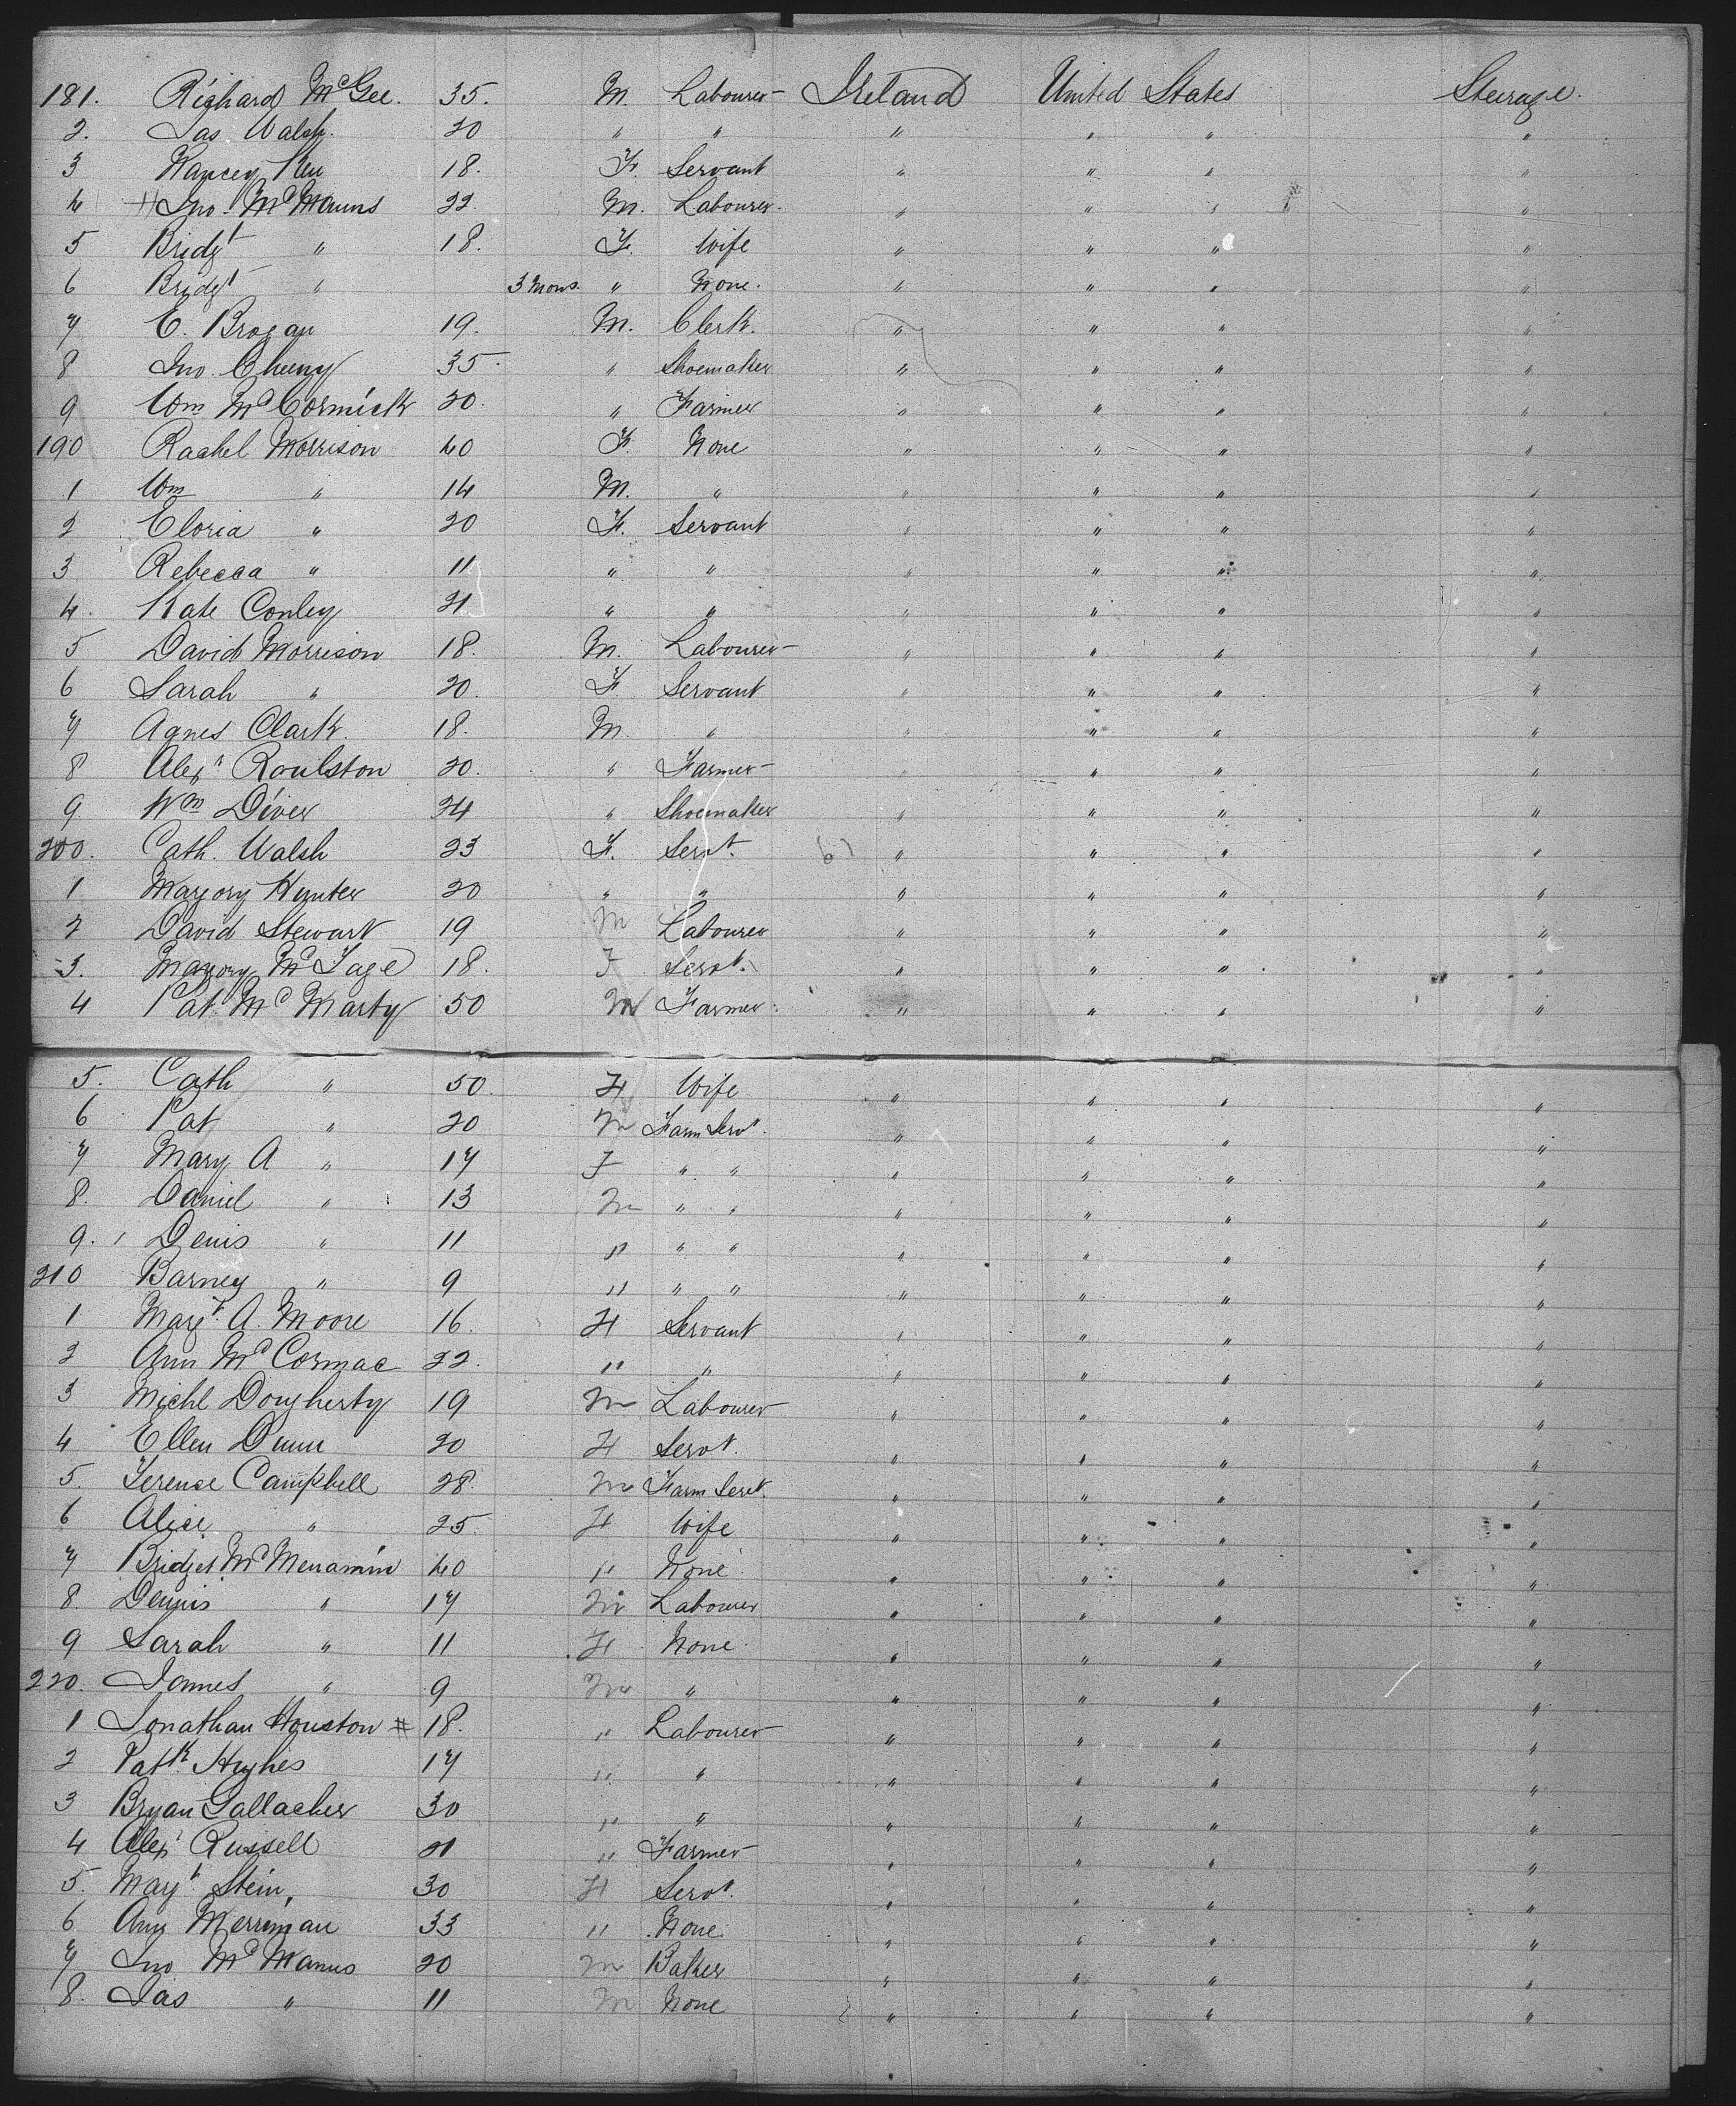 181. Richard McGee. 35. M. Labourer Ireland United States Steerage.
2. Jas Walsh. 20 " " " " " "
3 Nancy Keu 18. F. Servant " " " "
4 Jno. McManus 22 M. Labourer. " " " "
5 Bridgt " 18. F. Wife " " " "
6 Bridgt " 3 Mons. " None. " " " "
7 E. Brogan 19. M. Clerk. " " " "
8 Jno. Cheeny 35 " Shoemaker " " " "
9 Wm McCormick 20. " Farmer " " " "
190 Rachel Morrison 40 F. None " " " "
1 Wm " 14 M. " " " " "
2 Eloria " 20 F. Servant " " " "
3 Rebecca " 11 " " " " " "
4. Kate Conley 21 " " " " " "
5 David Morrison 18. M. Labourer " " " "
6 Sarah " 20. F. Servant " " " "
7 Agnes Clark. 18. M. " " " " "
8 Alexr Roulston 20. " Farmer " " " "
9 Wm Diver 24 " Shoemaker " " " "
200. Cath. Walsh 23 F. Servt. " " " "
1 Marjory Hunter 20 " " " " " "
2 David Stewart 19 M Labourer " " " "
3. Marjory Mc 18. F Servt. " " " "
4 Pat. Mc Marty 50 M Farmer. " " " "
5. Cath " 50. F Wife " " " "
6 Pat " 20 M Farm Servt. " " " "
7 Mary A " 17 F " " " " " "
8. Daniel " 13 M " " " " " "
9. Denis " 11 " " " " " " "
210 Barney " 9 " " " " " " "
1 Margt. A. Moore 16. F Servant " " " "
2 Ann McCormac 22. " " " " " "
3 Michl Dougherty 19 M Labourer " " " "
4 Ellen Dunn 20 F Servt. " " " "
5. Terence Campbell 28. M Farm Servt. " " " "
6 Alice " 25. F Wife " " " "
7 Bridget McMenamin 40 " None " " " "
8. Dennis " 17 M Labourer " " " "
9 Sarah " 11 F None. " " " "
220. James " 9 M " " " " "
1 Jonathan Houston # 18. " Labourer " " " "
2 Patk Hughes 17 " " " " " "
3 Bryan Gallacher 30 " " " " " "
4 Alexr Russell 21 " Farmer " " " "
5. Magt. Stein, 30 F Servt. " " " "
6 Ann Merriman 33 " None. " " " "
7 Jno McManus 20 M Baker " " " "
8. Jas " 11 M None " " " "